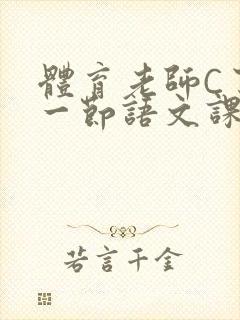 體育老師C
一節語文課
若言千金